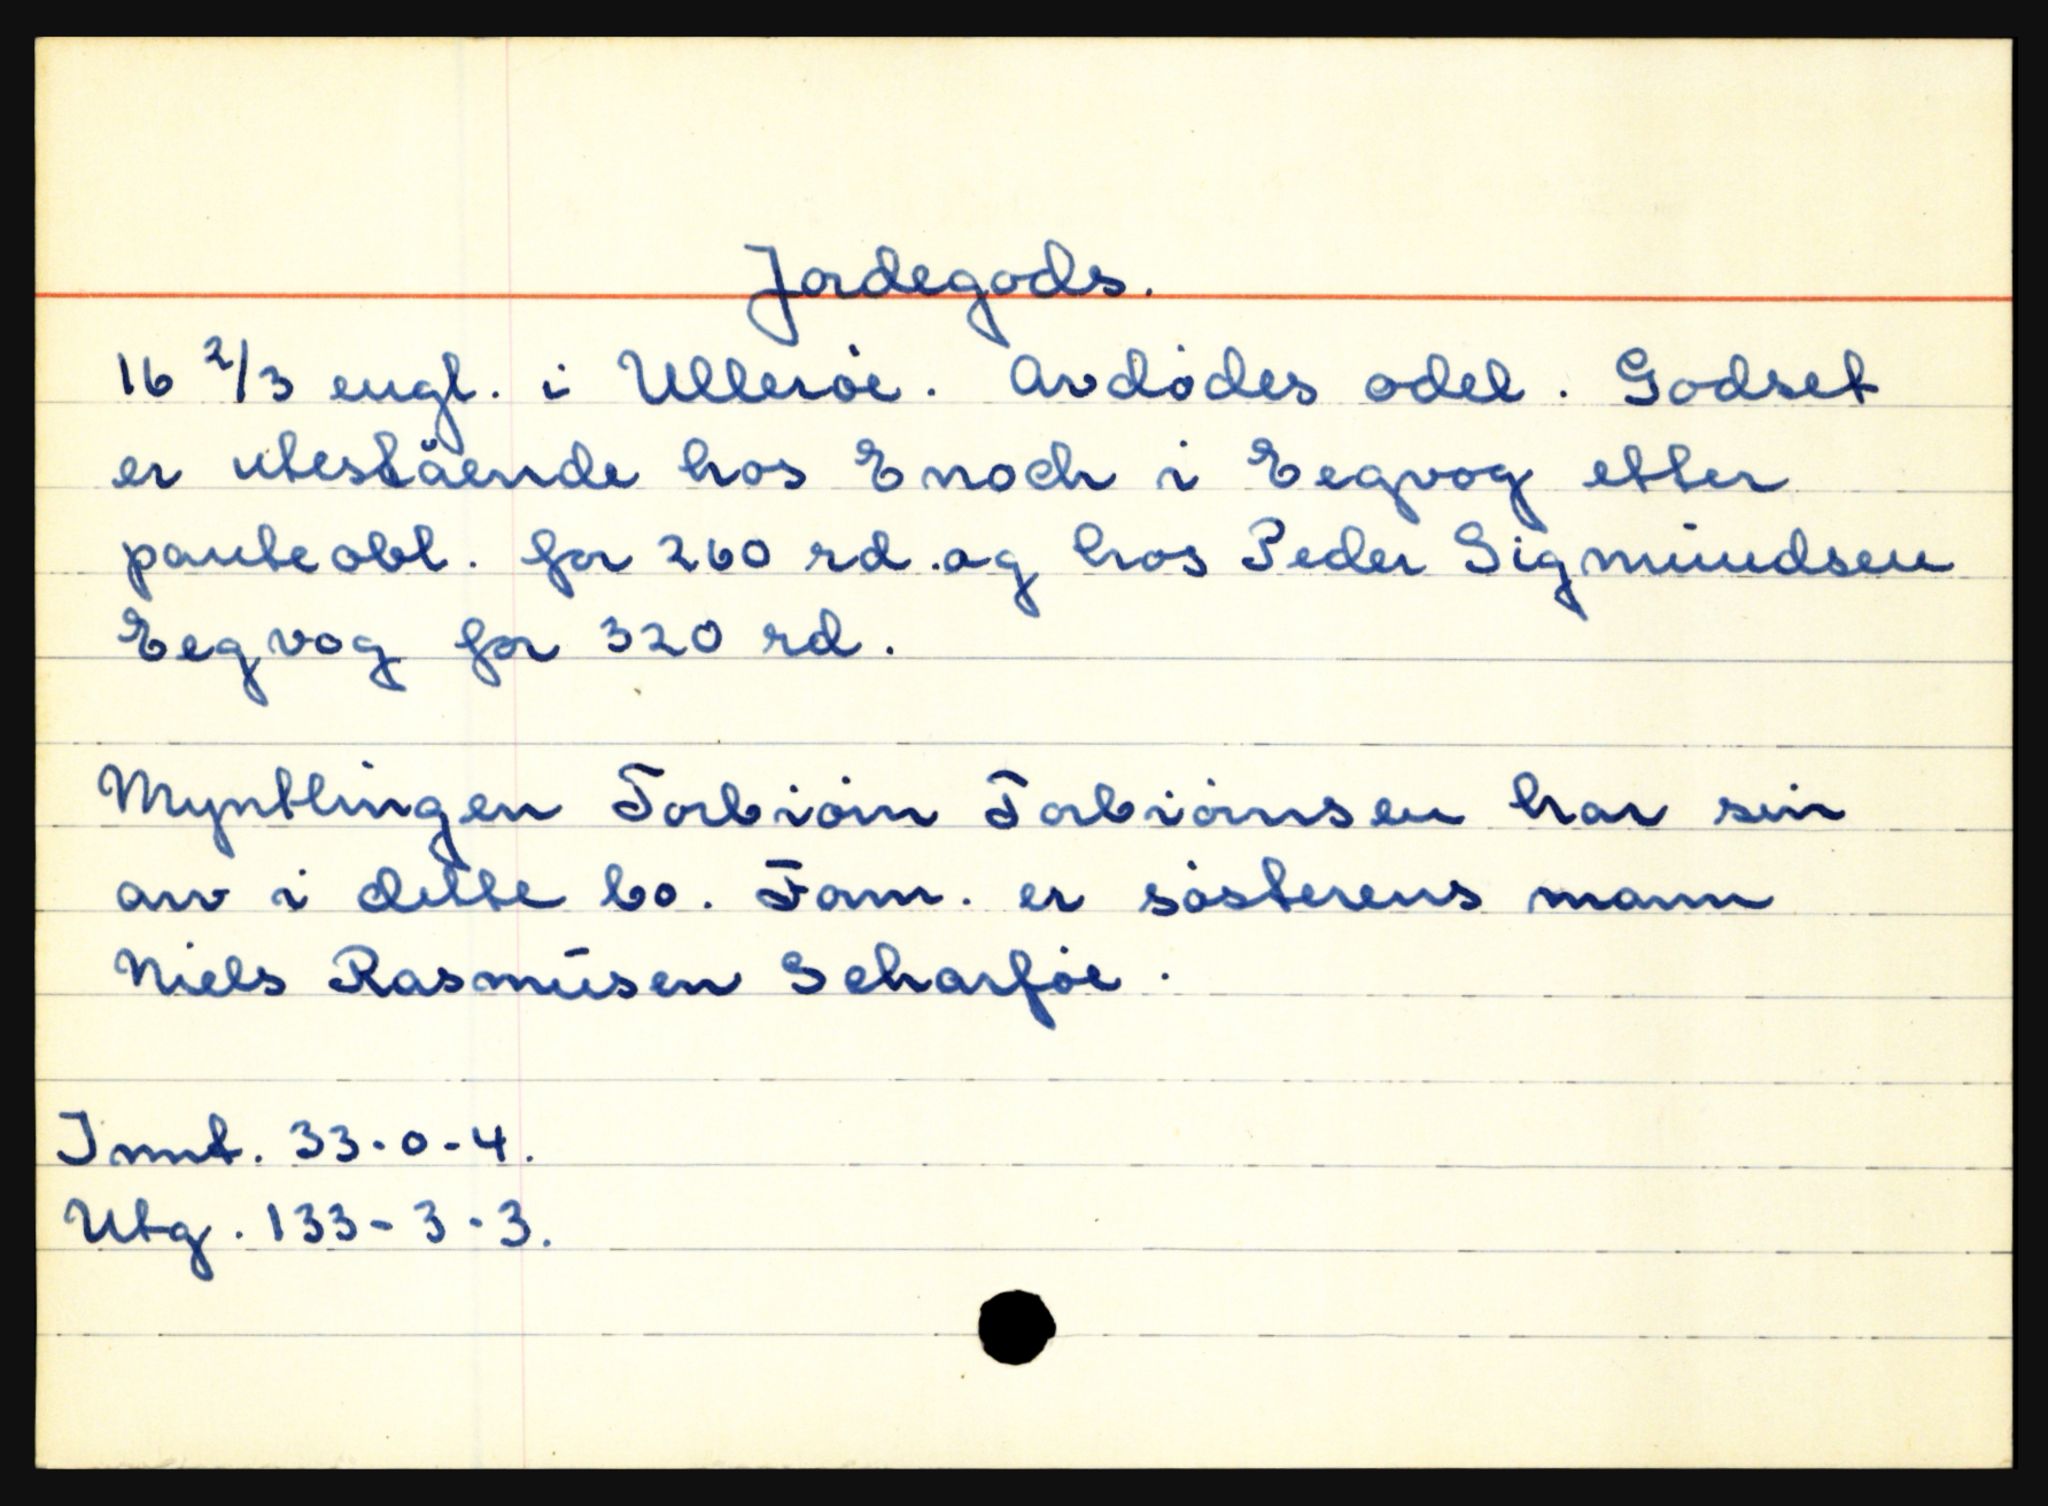 Jordegods.
16 2/3 engl. i Ullerøe. Avdødes odel. Godset
er utestående hos Enoch i Eegvog etter
panteobl. for 260 rd. og hos Peder Sigmundsen
Eegvog for 320 rd.
Myntlingen Torbiørn Torbiørnsen har sin
arv i dette bo. Form. er søsterens mann
Niels Rasmusen Scharføe.
Innt. 33-0-4.
Utg. 133-3-3.